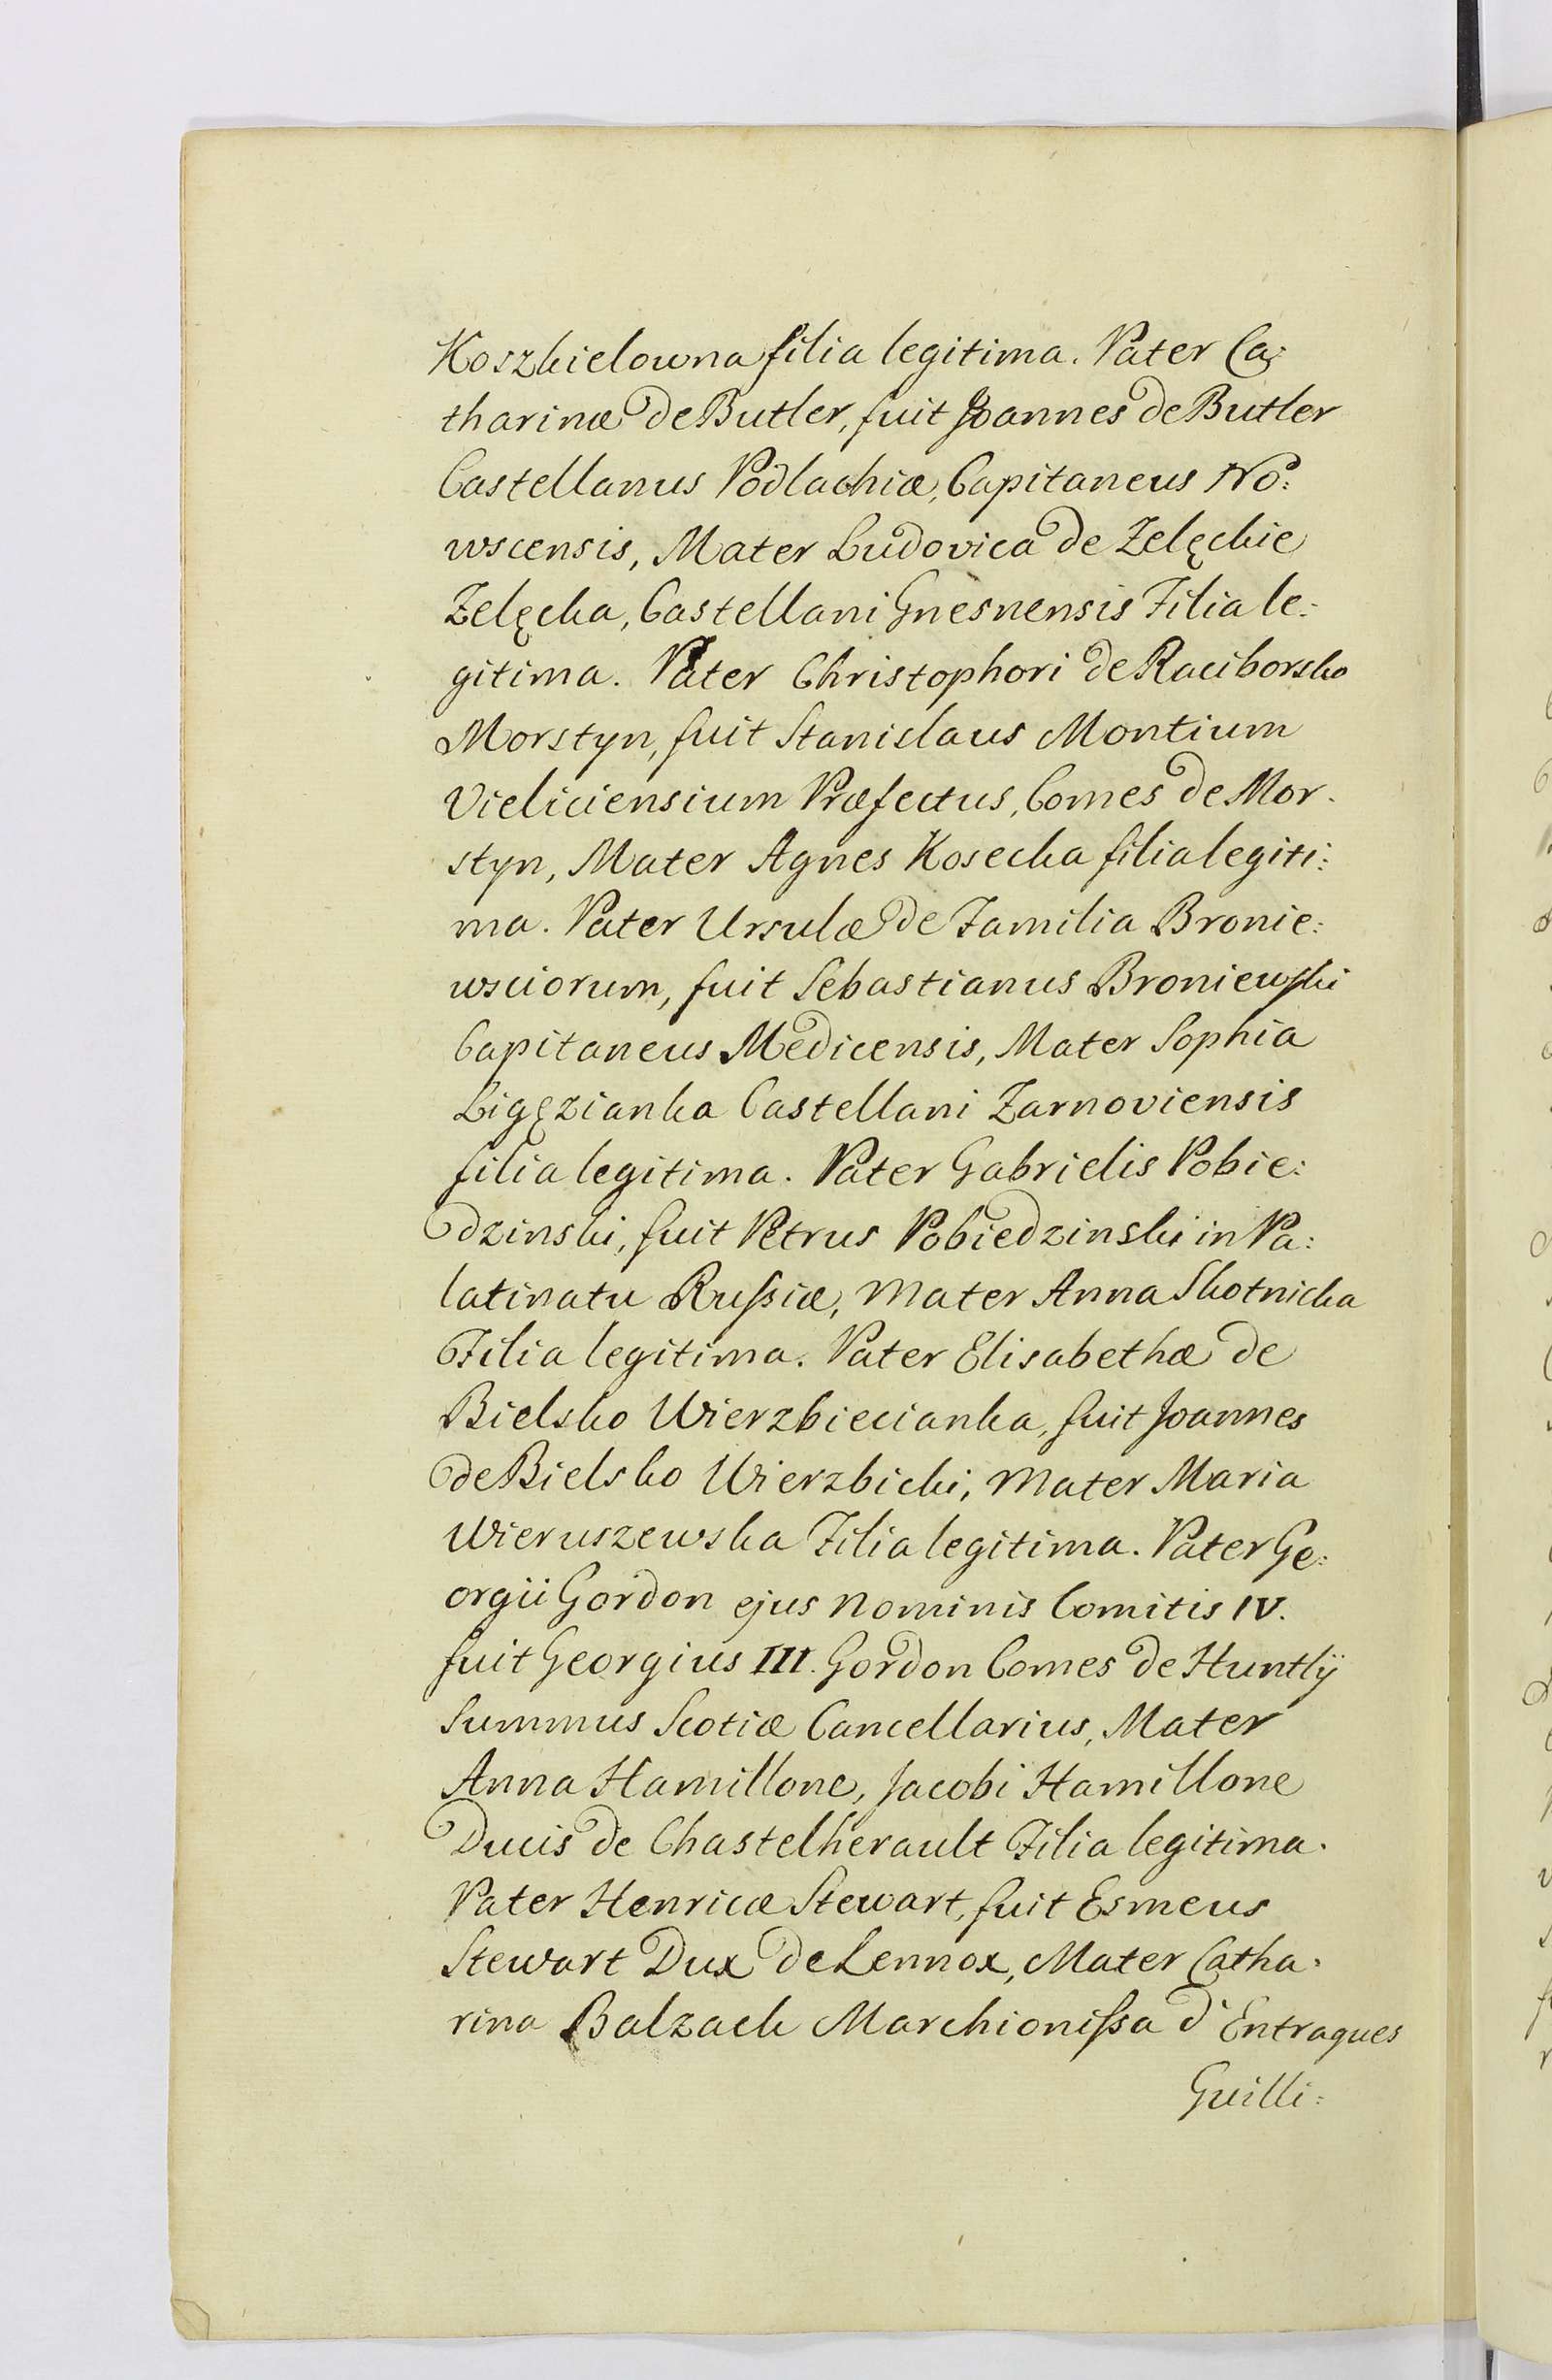 Koszkielowna filia legitima. Pater Ca:
tharinæ de Butler, fuit Joannes de Butler
Castellanus Podlachiæ, Capitaneus No:
wscensis, Mater Ludovica de Zelęckie
Zelęcka, Castellani Gnesnensis Filia le:
gitima. Pater Christophori de Raciborsko
Morstyn, fuit Stanislaus Montium
Vieliciensium Præfectus, Comes de Mor.
styn, Mater Agnes Kosecka filia legiti:
ma. Pater Ursulæ de Familia Bronie:
wsciorum, fuit Sebastianus Broniewski
Capitaneus Medicensis, Mater Sophia
Ligęzianka Castellani Zarnoviensis
filia legitima. Pater Gabrielis Pobie:
dzinski, fuit Petrus Pobiedzinski in Pa:
latinatu Rußiæ, Mater Anna Skotnicka
Filia legitima. Pater Elisabethæ de
Bielsko Wierzbiecianka, fuit Joannes
de Bielsko Wierzbicki, Mater Maria
Wieruszewska Filia legitima. Pater Ge:
orgii Gordon ejus Nominis Comitis IV.
fuit Georgius III. Gordon Comes de Huntlÿ
Summus Scotiæ Cancellarius, Mater
Anna Hamillone, Jacobi Hamillone
Ducis de Chastelherault Filia legitima.
Pater Henricæ Stewart, fuit Esmeus
Stewart Dux de Lennox, Mater Catha:
rina Balzack Marchionißa d'Entragues
Guilli: